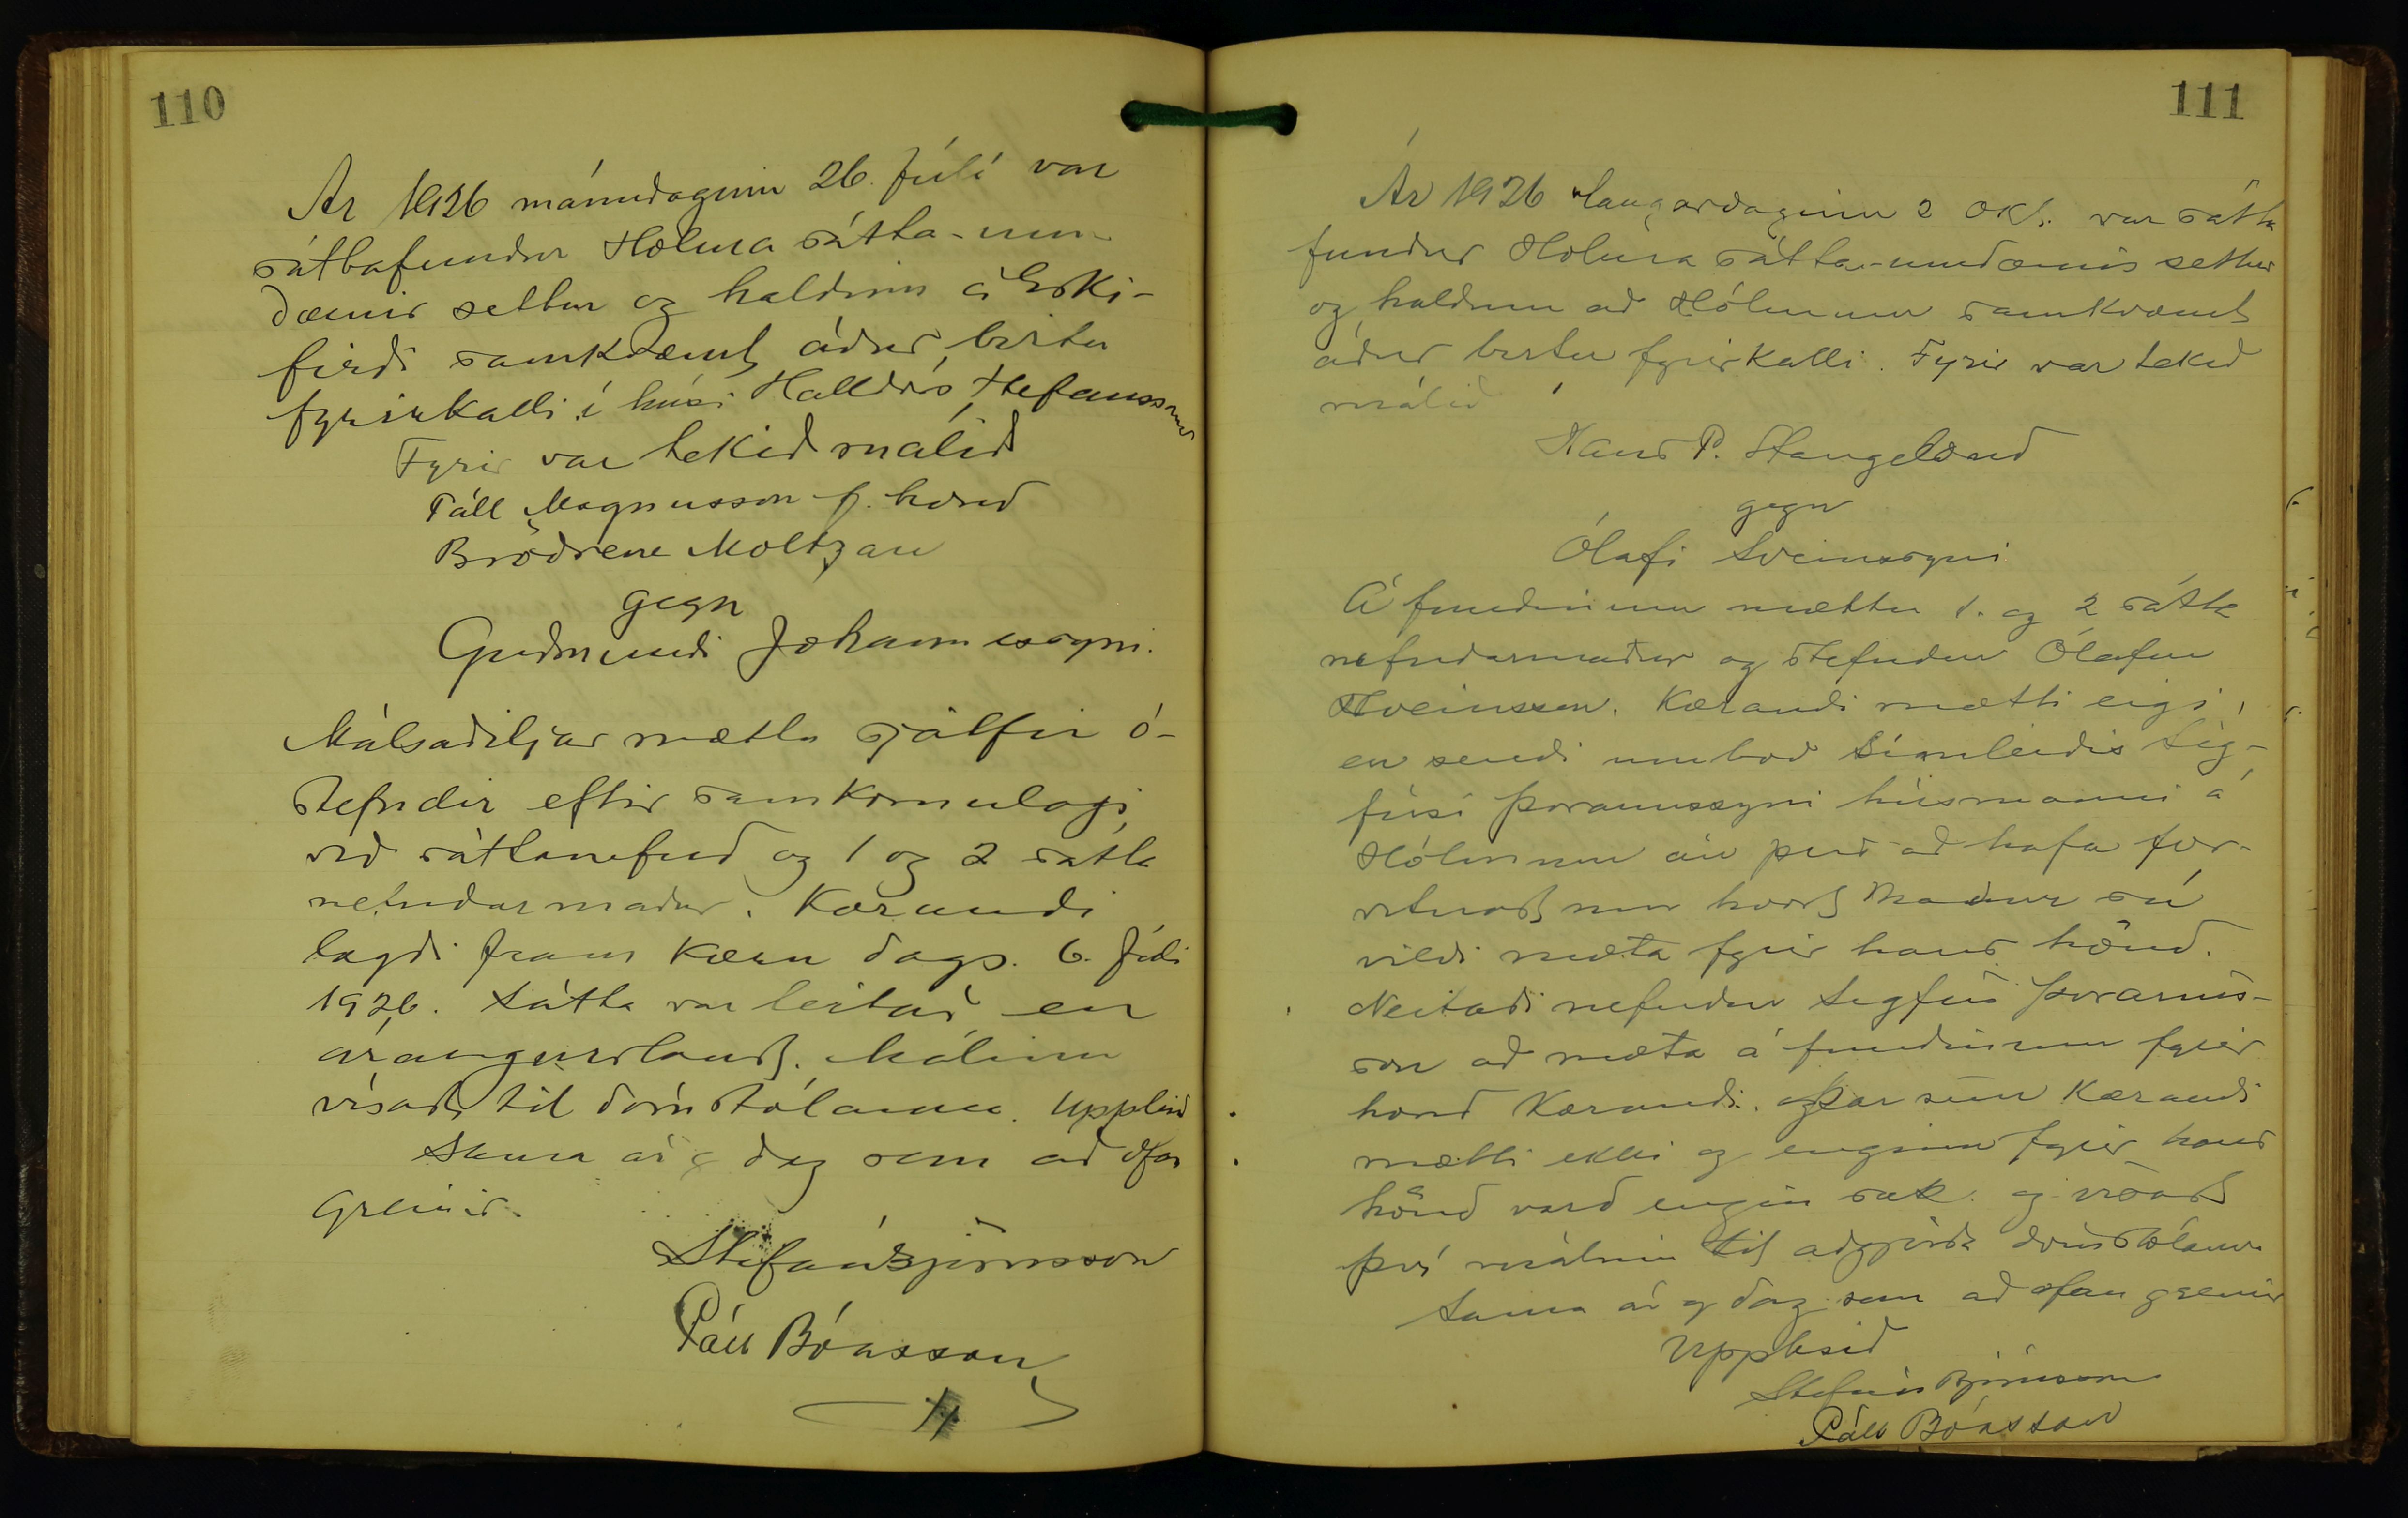 110
Ár 1926 mánudaginn 26. júlí var
sáttafundur Hólma sátta-um-
dæmis settur og haldinn á Eski-
firði samkvæmt áður birtu
fyrirkalli í húsi Halldórs Stefánssonar
Fyrir var tekið málið
Páll Magnusson f. hönd
Brödrene Moltzau
gegn
Guðmundi Jóhannessyni.
Málsaðiljar mættu sjálfir ó-
stefndir eftir samkomulagi
við sáttanefnd og 1 og 2 sátta
nefndarmaður. Kærandi
lagði fram kæru dags. 6. júlí
1926. Sátta var leitað en
árangurslaust. Málinu
vísað til dómstólanna. Upplesið
Sama ár & dag sem að ofan
greinir.
Stefán Björnsson
Páll Bóasson
111
Ár 1926 laugardaginn 2 okt. var sátta
fundur Hólma sátta-umdæmis settur
og haldinn að Hólmum samkvæmt
áður birtu fyrirkalli. Fyrir var tekið
málið
Hans P. Stangeland
gegn
Ólafi Sveinssyni
Á fundinum mættu 1. og 2 sátta
nefndarmaður og stefndur Ólafur
Sveinsson. Kærandi mætti eigi,
en sendi umboð símleiðis Sig-
fúsi Þorarinssyni húsmanni á
Hólmum án þess að hafa for-
vitnast um hvort maður sú
vildi mæta fyrir hans hönd.
Neitaði nefndur Sigfús Þorarins-
son að mæta á fundinum fyrir
hönd kæranda. Þar sem kærandi
mætti ekki og enginn fyrir hans
hönd varð engin sætt og vísað
því málinu til aðgjörða dómstólanna
Sama ár og dag sem að ofan greinir
Upplesið
Stefán Björnsson
Páll Bóasson